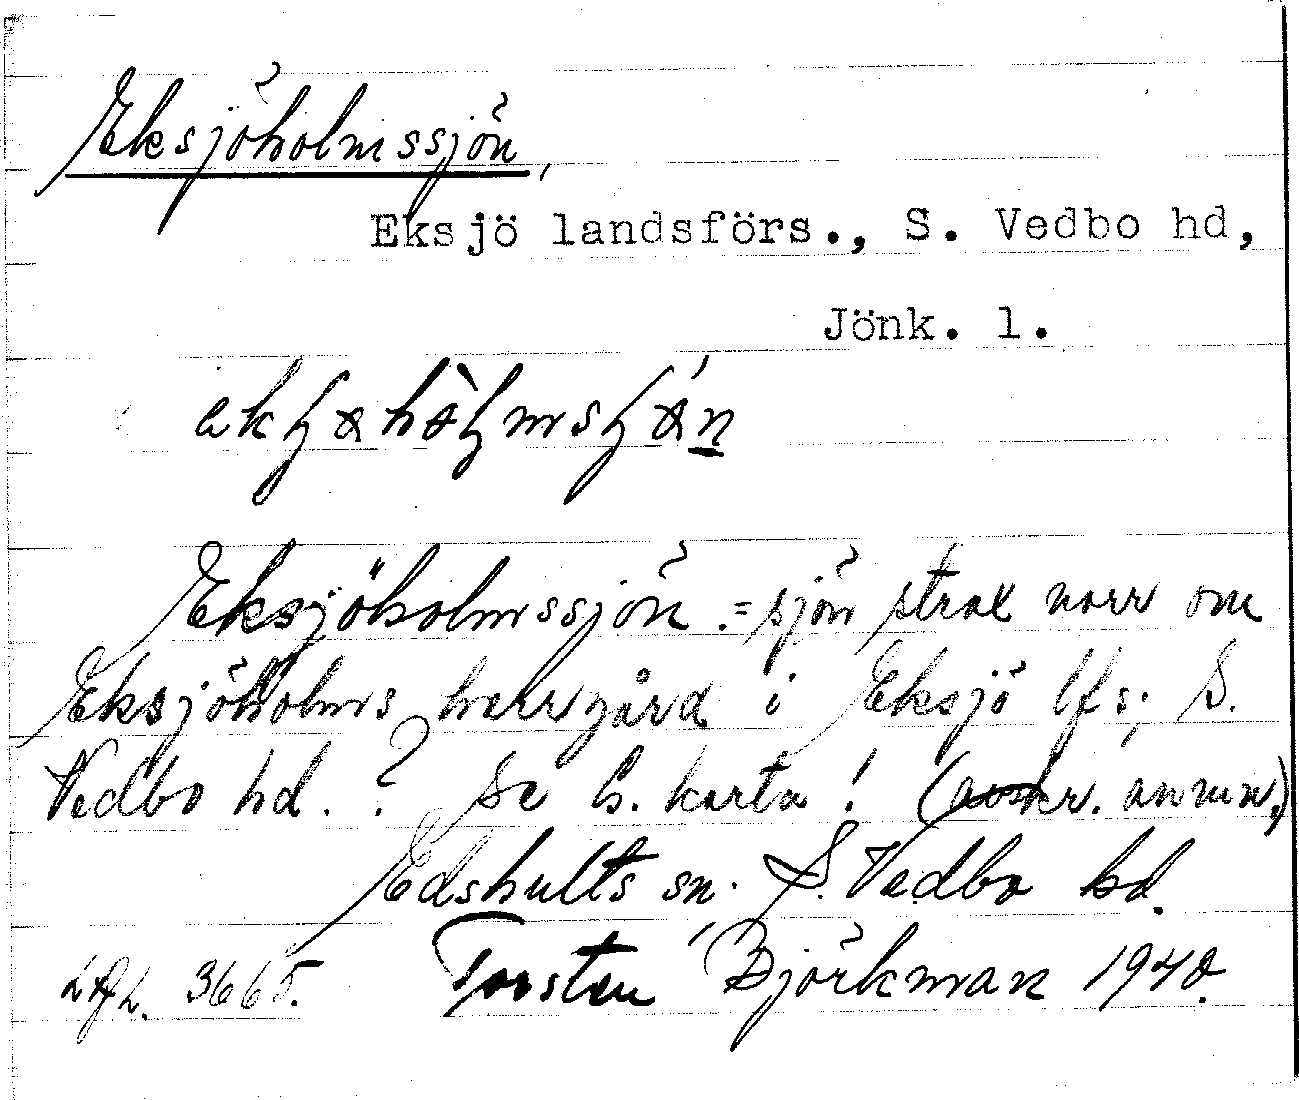 Eksjöholmssjön,
Eksjö landsförs., S. Vedbo hd,
Jönk. l.
Eksjöholmssjön. = sjön strax norr om
Eksjöholms herrgård i Eksjö lfs; S.
Vedbo hd. ? Se G. karta! (avskr. anm.)
Edshults sn. S. Vedbo hd.
3665. Torsten Björkman 1940.